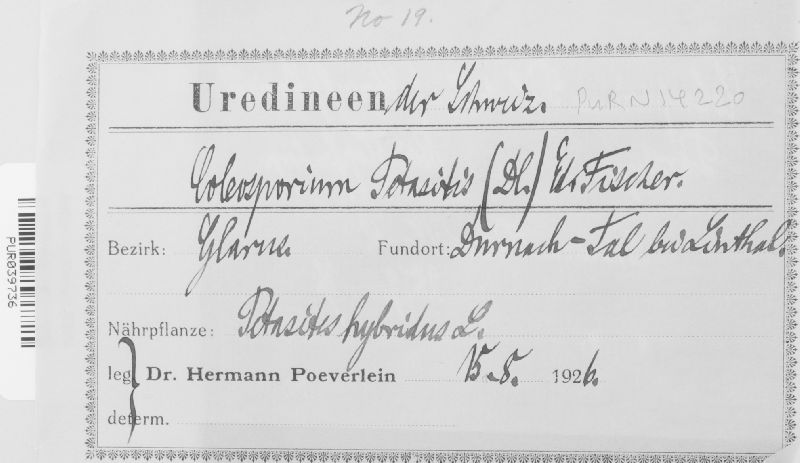 No 19.
Uredineen der Schweiz. PURN14220
Coleosporium Petasitis (DC.) Ed. Fischer.
Bezirk: Glarus. Fundort: Durnach-Tal bei Linthal.
Nährpflanze: Petasites hybridus L.
leg. Dr. Hermann Poeverlein 15.8. 1926.
determ.
PUR039736